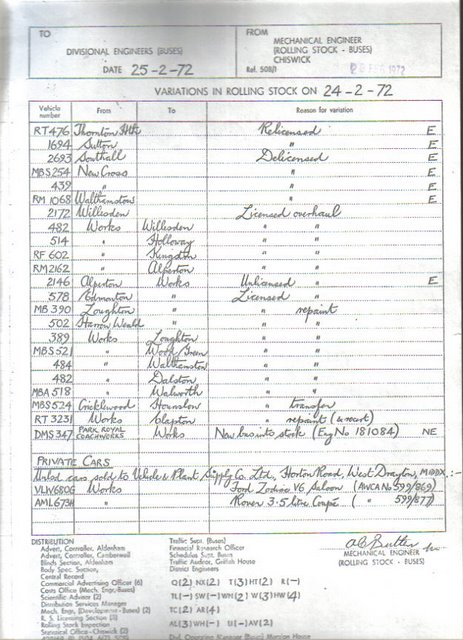 TO
FROM
DIVISIONAL ENGINEERS (BUSES)
MECHANICAL ENGINEER
(ROLLING STOCK - BUSES)
CHISWICK
DATE 25-2-72
Ref. 508/1
1972
VARIATIONS IN ROLLING STOCK ON 24-2-72
Vehicle number From To Reason for variation
RT 476 Thornton Hth Relicensed E
1694 Sutton " E
2693 Southall Delicensed E
MBS 254 New Cross " E
439 " " E
RM 1068 Walthamstow " E
2172 Willesden Licensed overhaul
482 Works Willesden " "
514 " Holloway " "
RF 602 " Kingston " "
RM 2162 " Alperton " "
2146 Alperton Works Unlicensed " E
578 Edmonton " Licensed "
MB 390 Loughton " " repaint
502 Harrow Weald " " "
389 Works Loughton " "
MBS 521 " Wood Green " "
484 " Walthamstow " "
482 " Dalston " "
MBA 518 " Walworth " "
MBS 524 Cricklewood Hounslow " transfer
RT 3231 Works Clapton " repaint (& recert)
DMS 347 PARK ROYAL COACHWORKS Works New bus into stock (Eng No 181084) NE
PRIVATE CARS
Unlsd cars sold to Vehicle & Plant Supply Co. Ltd., Horton Road, West Drayton, MIDDX :-
VLW 680G Works Ford Zodiac V6 Saloon (AWCA No 599/869)
AML 673H " Rover 3.5 litre Coupé ( " 599/877)
DISTRIBUTION
Advert. Controller, Aldenham
Advert. Controller, Camberwell
Blinds Section, Aldenham
Body Spec. Section,
Central Record
Commercial Advertising Officer (6)
Costs Office (Mech. Engr-Buses)
Scientific Advisor (2)
Distribution Services Manager
Mech. Engr, (Development - Buses) (2)
R. S. Licensing Section (3)
Rolling Stock Inspection
Statistical Office - Chiswick (2)
Traffic Supt. (Buses)
Financial Research Officer
Schedules Supt. Buses
Traffic Auditor, Griffith House
District Engineers
Q(2) NX(2) T(3) HT(2) R(-)
TL(-) SW(-) WH(2) W(3) HW(4)
TC(2) AR(4)
AL(3) WH(-) UX(-) AV(2)
MECHANICAL ENGINEER
(ROLLING STOCK - BUSES)